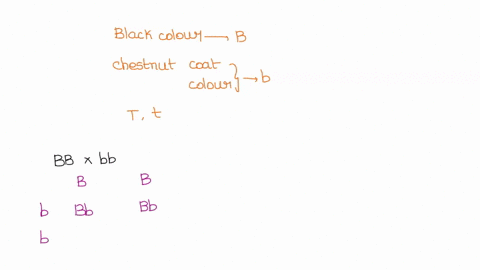 Black colour → B
chestnut coat
colour } → b
T, t
BB × bb
B B
b Bb Bb
b